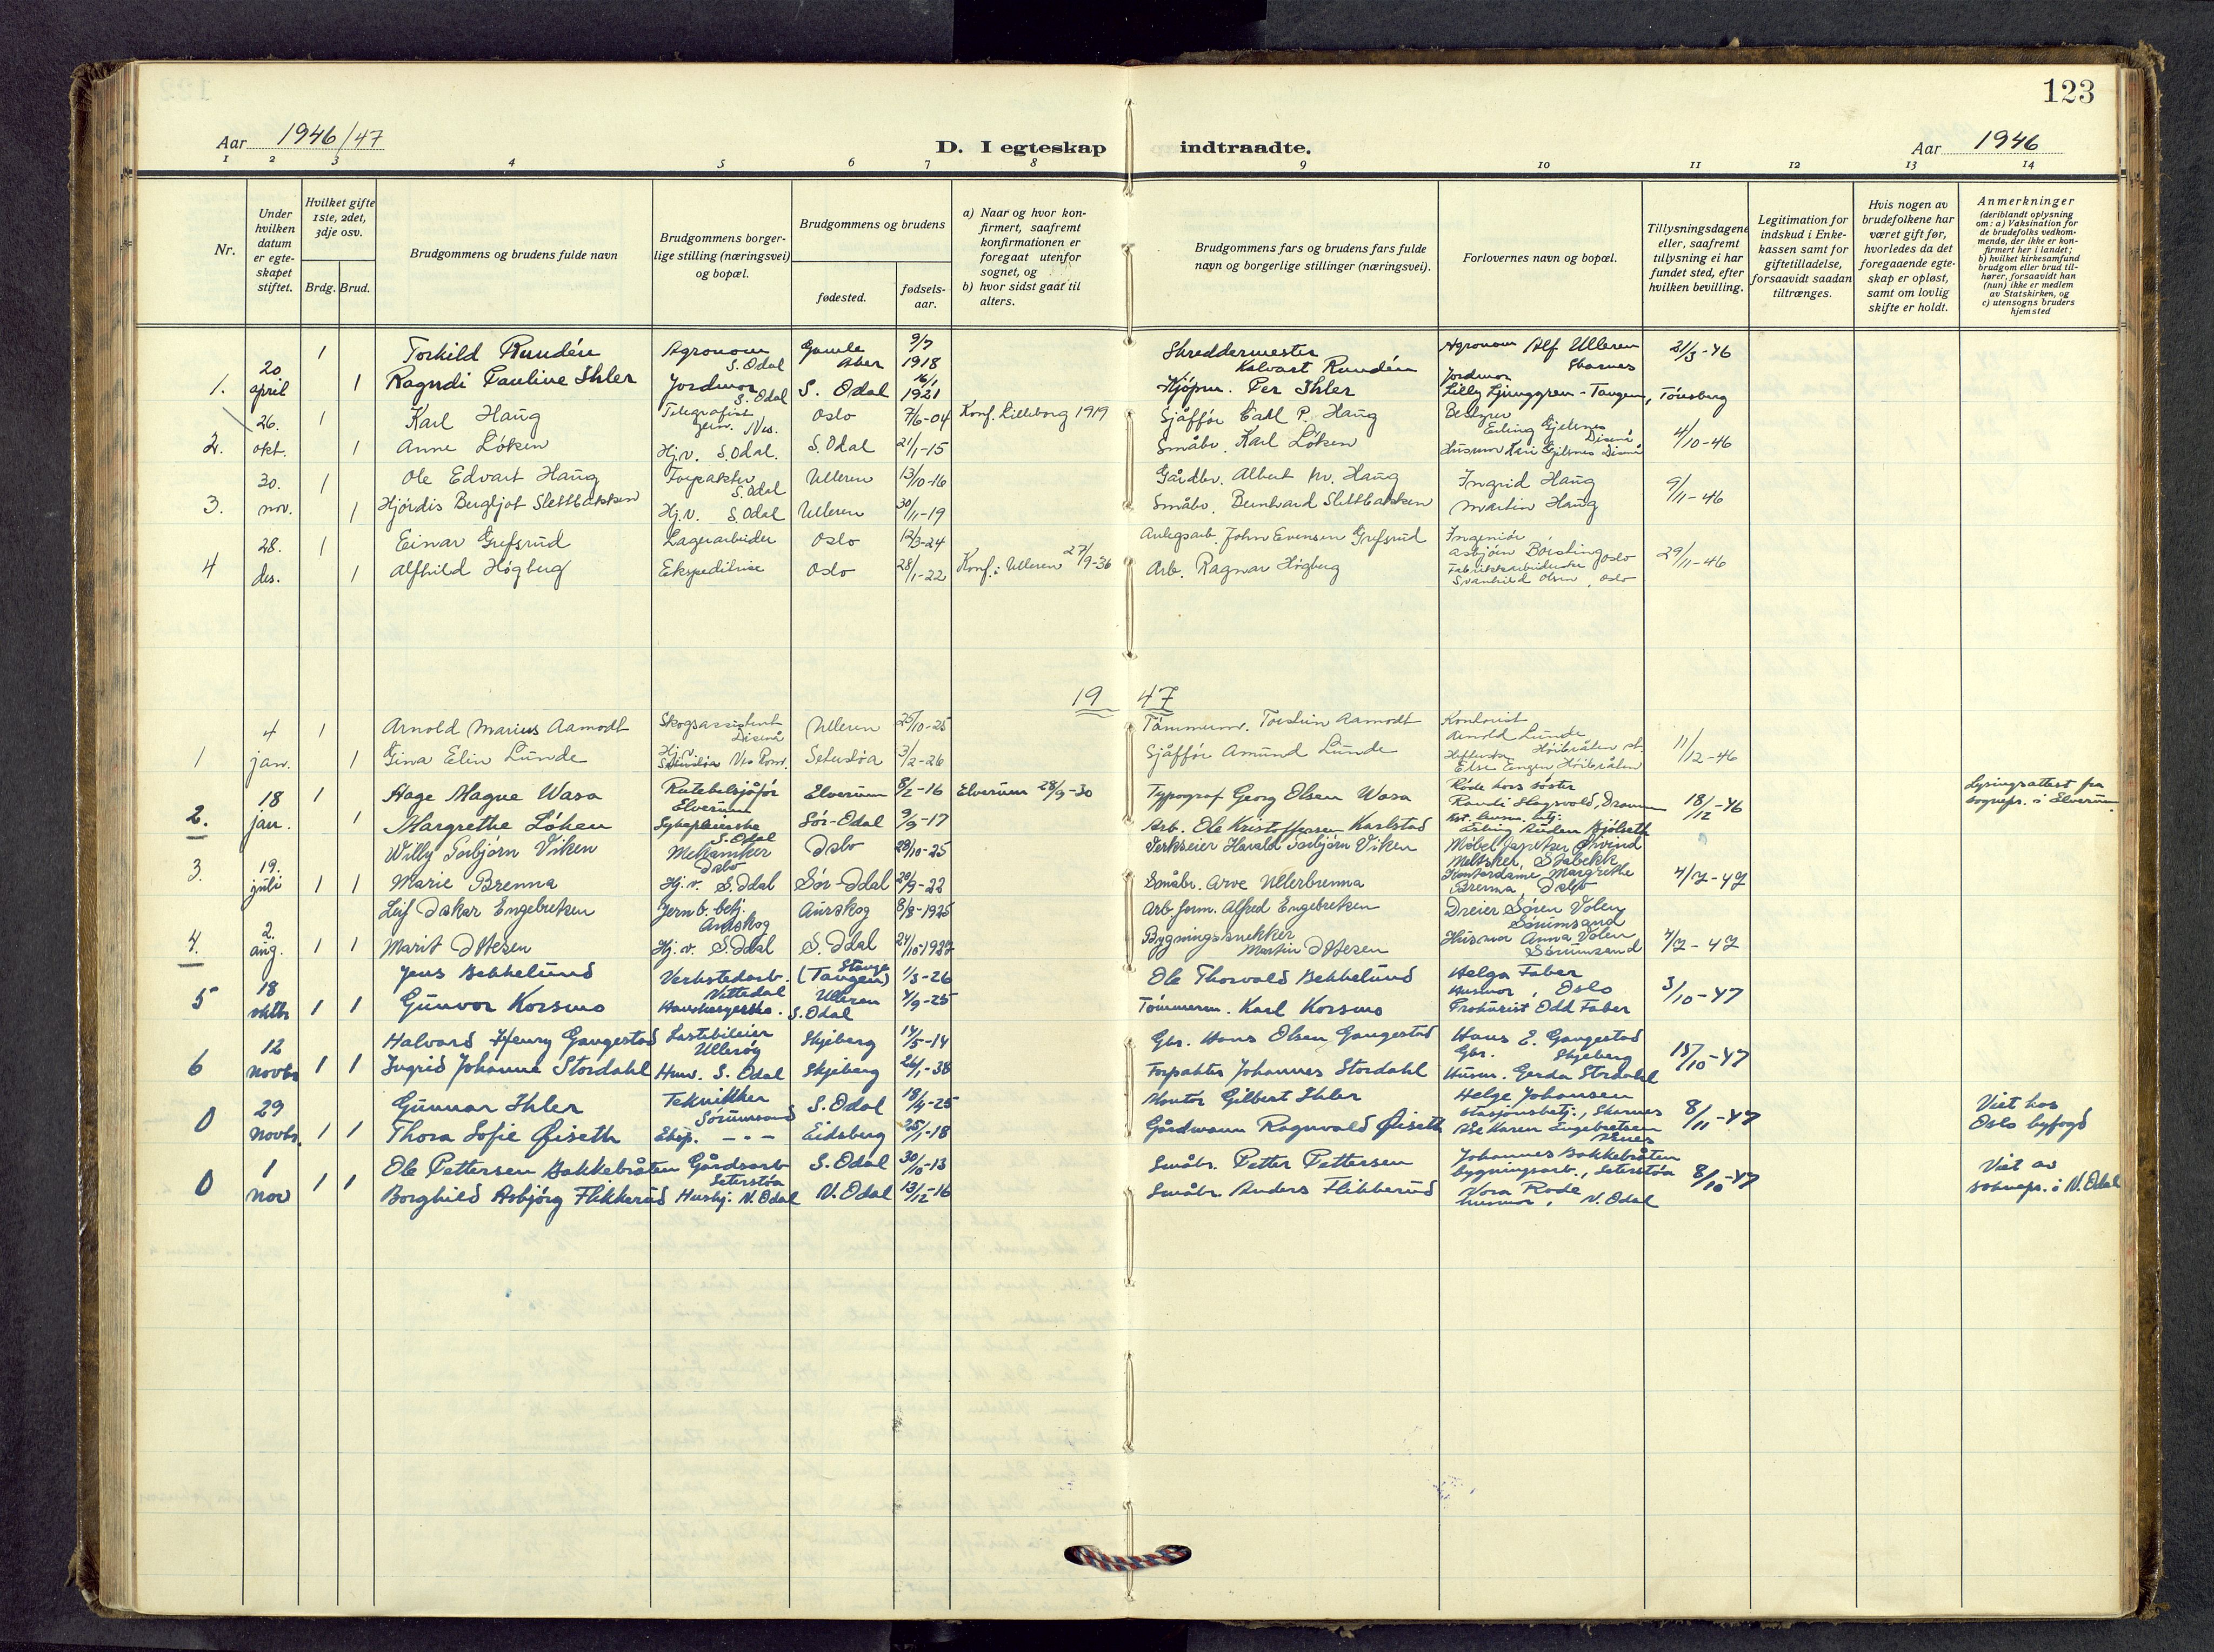 123
Aar 1946/47
D. I egteskap indtraadte.
Aar 1946
1 2 3 4 5 6 7 8 9 10 11 12 13 14
Nr.
Under hvilken datum er egteskapet stiftet.
Hvilket gifte 1ste, 2det, 3dje osv.
Brdg. Brud.
Brudgommens og brudens fulde navn
Brudgommens borgerlige stilling (næringsvei) og bopæl.
Brudgommens og brudens
fødested.
fødselsaar.
a) Naar og hvor konfirmert, saafremt konfirmationen er foregaat utenfor sognet, og
b) hvor sidst gaat til alters.
Brudgommens fars og brudens fars fulde navn og borgerlige stillinger (næringsvei).
Forlovernes navn og bopæl.
Tillysningsdagene eller, saafremt tillysning ei har fundet sted, efter hvilken bevilling.
Legitimation for indskud i Enkekassen samt for giftetilladelse, forsaavidt saadan tiltrænges.
Hvis nogen av brudefolkene har været gift før, hvorledes da det foregaaende egteskap er opløst, samt om lovlig skifte er holdt.
Anmerkninger
(deriblandt oplysning om: a) Vaksination for de brudefolks vedkommende, der ikke er konfirmert her i landet;
b) hvilket kirkesamfund brudgom eller brud tilhører, forsaavidt han (hun) ikke er medlem av Statskirken, og
c) utensogns bruders hjemsted
1. 20 april 1 Torkild Rundén Agronom S. Odal Gamle Aker 9/7 1918 Skreddermester Kalvart Rundén Agronom Alf Ulleren Skarnes 31/3-46
1 Ragndi Pauline Ihler Jordmor S. Odal S. Odal 16/1 1921 Kjøpm. Per Ihler Jordmor Lilly Ljunggren - Tangen, Tønsberg
2. 26. okt. 1 Karl Haug Telegrafist Nes. Oslo 7/6-04 Konf. Lilleborg 1919 Sjåffør Carl P. Haug Bestyrer Erling Gjelsnes Disenå 4/10-46
1 Anne Løken Hj.v. S. Odal. S. Odal 21/1-15 Småbr. Karl Løken Husmor Kari Gjelsnes Disenå
3. 30. nov. 1 Ole Edvart Haug Forpakter S. Odal Ulleren 13/10-16 Gårdbr. Albert M. Haug Ingrid Haug 9/11-46
1 Hjørdis Bergljot Slettbakken Hj.v. S. Odal Ulleren 30/11-19 Småbr. Bernhard Slettbakken Martin Haug
4 28. des. 1 Einar Grefsrud Lagerarbeider Oslo 12/3-24 Anlegsarb. John Evensen Grefsrud Ingeniør Asbjørn Børsting Oslo 29/11-46
1 Alfhild Høgberg Ekspeditrise Oslo 28/1-22 Konf. i Ulleren 27/9-36 Arb. Ragnar Høgberg Fabrikkarbeiderske Svanhild Olsen, Oslo
1947
1 4 jan. 1 Arnold Marius Aamodt Skogsassistent Disenå Ulleren 25/10-25 Tømmerm. Torstein Aamodt Kontorist Arnold Lunde Høibråten st. 11/12-46
1 Gina Elin Lunde Hj.v. Seterstøa 3/2-26 Sjåffør Amund Lunde Else Engen Høibråten
2. 18 jan. 1 Aage Magne Wasa Rutebilsjåfør Elverum Elverum 8/2-16 Elverum 28/9-30 Typograf Georg Olsen Wasa Røde kors søster Randi Slagsvold, Dramm 18/12-46 Lysingsattest fra sognepr. i Elverum
1 Margrethe Løken Sykepleierske S. Odal Sør-Odal 9/9-17 Arb. Ole Kristoffersen Karlstad Erling Ruden Bjølseth
3. 19. juli 1 1 Willy Torbjørn Viken Mekaniker Oslo Oslo 28/10-25 Verkseier Harald Torbjørn Viken Møbeltapetser Øivind Stabekk 4/7-47
Marie Brenna Hj.v. S. Odal Sør-Odal 20/9-22 Småbr. Arve Ullerbrenna Kontordame Margrethe Brenna, Oslo
4. 2. aug. 1 1 Leif Oskar Engebretsen Jernb. betj. Aurskog Aurskog 8/8-1925 Arb.form. Alfred Engebretsen Dreier Søren Volen Sørumsand 4/7-47
Marit Ottesen Hj.v. S. Odal S. Odal 24/10-1927 Bygningssnekker Martin Ottesen Husmor Anna Volen Sørumsand
5 18 oktbr 1 1 Jens Bekkelund Verkstedarb. Nittedal (Tangen) Stange 1/3-26 Ole Thorvald Bekkelund Helga Faber Husmor, Oslo 3/10-47
Gunvor Korsmo Ulleren S. Odal 4/9-25 Tømmerm. Karl Korsmo Prokurist Odd Faber
6 12 novbr 1 1 Halvard Henry Gangestad Lastebileier Ullerøy Skjeberg 14/5-14 Gbr. Hans Olsen Gangestad Hans E. Gangestad Gbr. Skjeberg 15/10-47
Ingrid Johanne Stordahl Husv. S. Odal Skjeberg 26/1-38 Forpakter Johannes Stordahl Husm. Gerda Stordahl
0 29 novbr. 1 1 Gunnar Ihler Tekniker Sørumsand S. Odal 18/4-25 Kontor Gilbert Ihler Helge Johansen stasjonsbetj., Skarnes 8/11-47 Viet hos Oslo byfogd
Thora Sofie Øiseth Eksp. -"- Eidsberg 25/1-18 Gårdmann Ragnvald Øiseth Åse Karen Engebretsen Årnes
0 1 nov 1 1 Ole Pettersen Bakkebråten Gårdsarb Seterstøa S. Odal 30/10-13 Småbr. Petter Pettersen Johannes Bakkebråten bygningsarb., Seterstøa 8/10-47 Viet av sognepr. i N. Odal
Borghild Asbjørg Flikkerud Hushj. N. Odal N. Odal 13/12-16 Småbr. Anders Flikkerud Nora Rode husmor, N. Odal